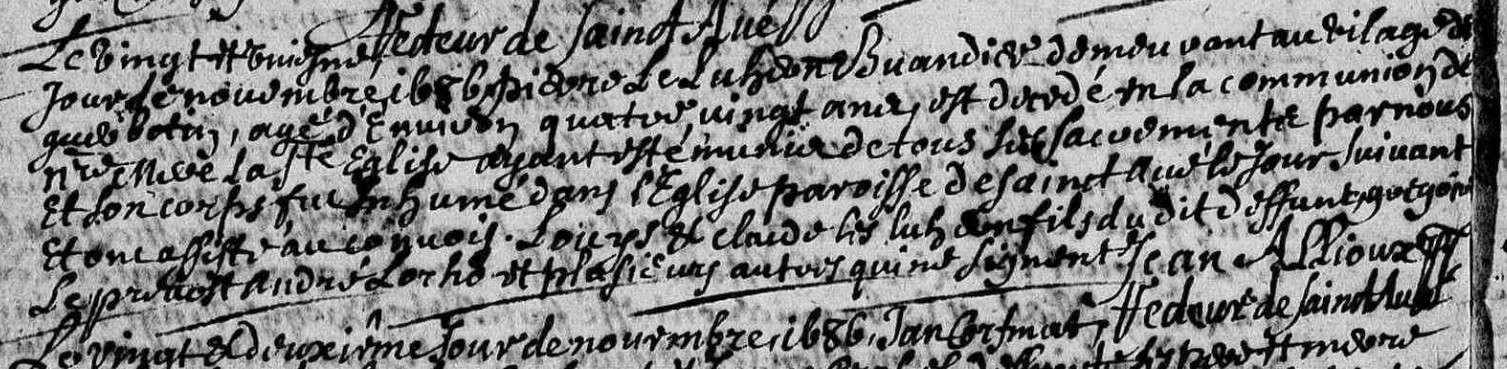 Recteur de sainct Avé
Le vingt et uniesme
Jour de novembre 1686 pierre Le Luhern Buandier demeurant au vilage de
botin, agé d'Environ quatre vingt ans, est decedé en la communion de
nre mere la Ste Eglise ayant esté munie de tous les sacrements par nous
Et son corps fut Inhumé dans l'Eglise paroisse de sainct Avé le Jour suivant
Et ont assisté au convois. Louys et claude les luhern fils du dit deffunt, gregoire
Le prevost André Lorho et plusieurs autres qui ne signent Jean Allioux
Recteur de sainct Avé
Le vingt et deuxième Jour de novembre, 1686, Jan
pere et mere